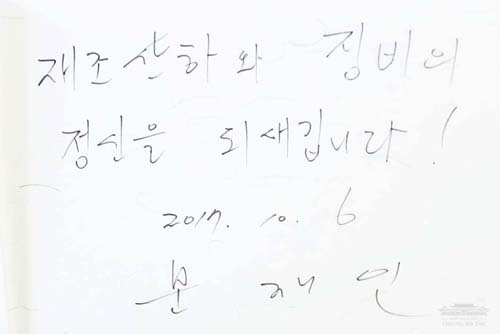 재조산하와 징비의
정신을 되새깁니다!
2017. 10. 6
문 재 인